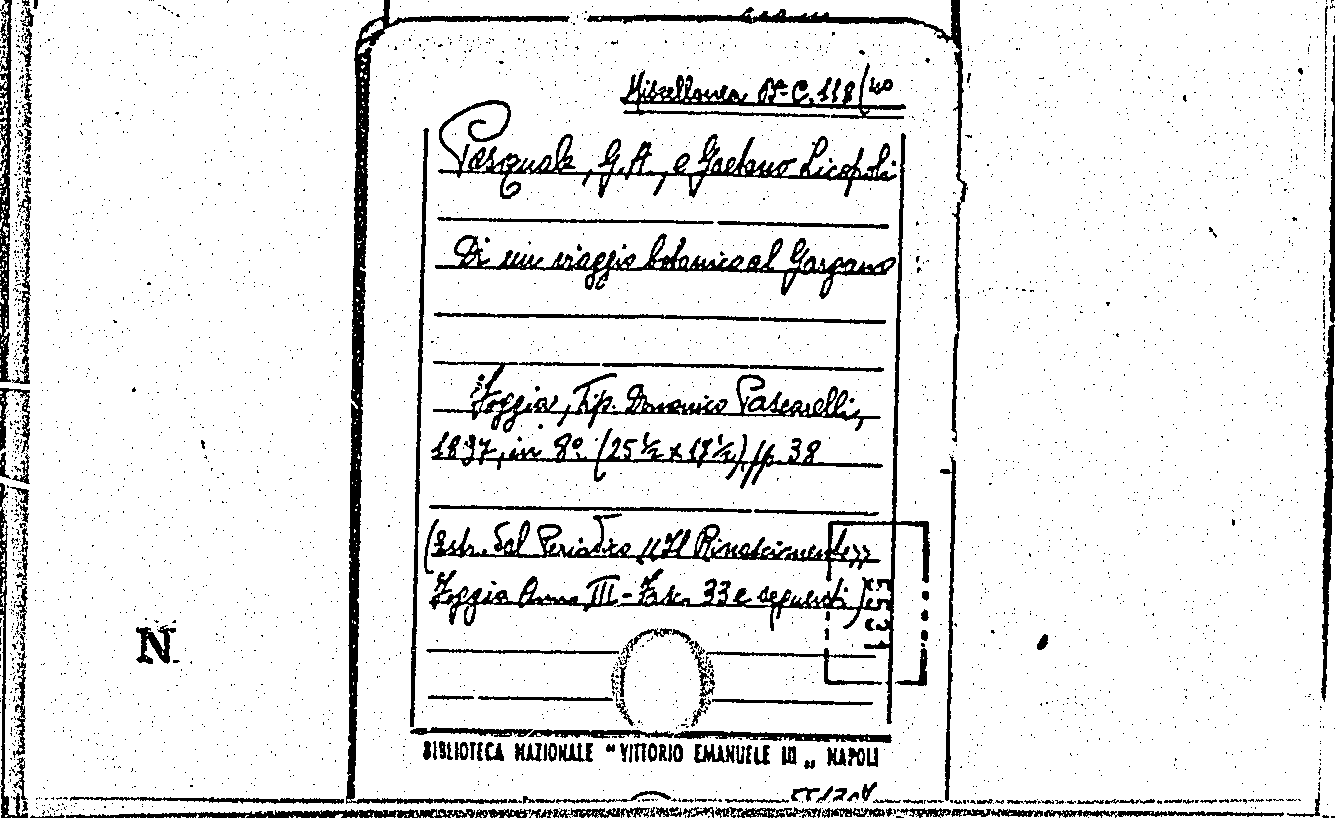 Miscellanea Bª C. 118(40
Pasquale, G.A., e Gaetano Licopoli
Di un viaggio botanico al Gargano
Foggia, Tip. Domenico Pascarelli,
1897, in 8º (25 ½ x 17 ½) pp. 38
(Estr. dal Periodico "Il Rinascimento"
Foggia Anno III - Fasc. 33 e seguenti)
N
BIBLIOTECA NAZIONALE " VITTORIO EMANUELE III „ NAPOLI